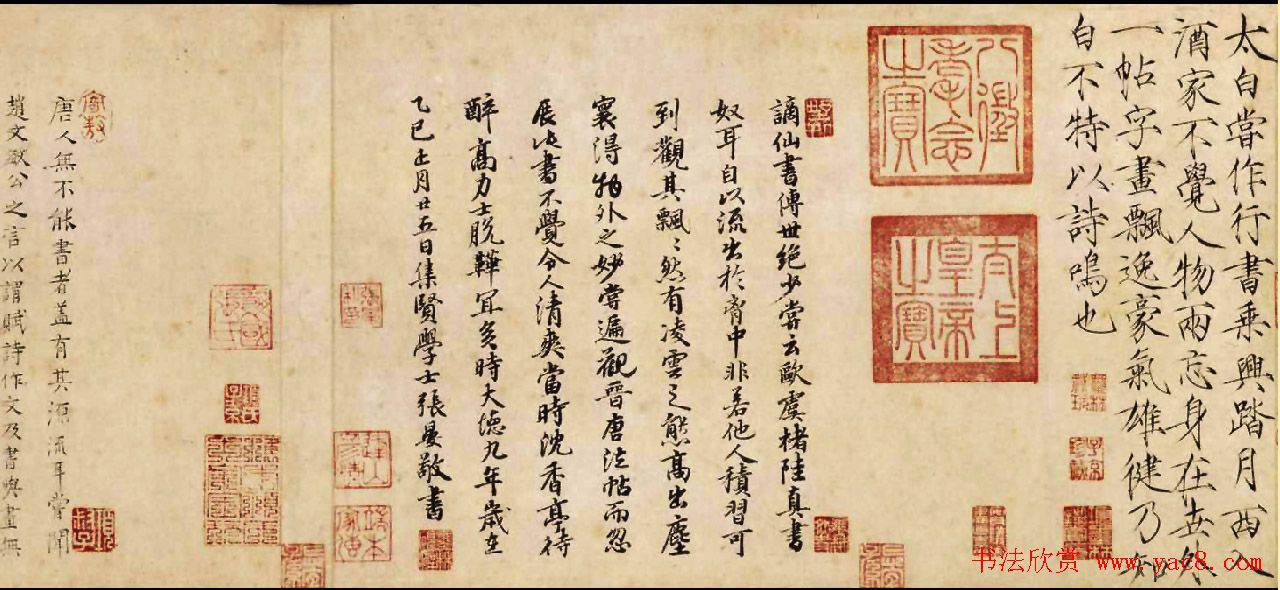 太白嘗作行書乘興踏月西入
酒家不覺人物兩忘身在世外
一帖字畫飄逸豪氣雄健乃知
白不特以詩鳴也
八徵耄念之寶
太上皇帝之寶
謫仙書傳世絶少嘗云歐虞褚陸真書
奴耳自以流出於胷中非若他人積習可
到觀其飄〻然有凌雲之態高出塵
寰得物外之妙嘗遍觀晉唐法帖而忽
展此書不覺令人清爽當時沈香亭待
醉高力士脱鞾冝矣時大德九年歲在
乙巳正月廿五日集賢學士張晏敬書
唐人無不能書者蓋有其源流耳嘗聞
趙文敏公之言以謂賦詩作文及書與畫無
书法欣赏 www.yac8.com